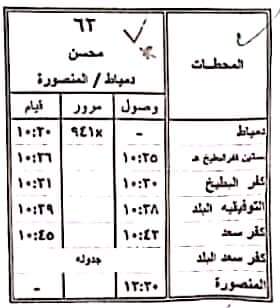 المحطات
٦٢
محسن
دمياط / المنصورة
وصول مرور قيام
دمياط - ٩٤١x ١٠:٢٠
بساتين كفر البطيخ هـ ١٠:٢٥ ١٠:٢٦
كفر البطيخ ١٠:٣٠ ١٠:٣١
التوفيقيه البلد ١٠:٣٨ ١٠:٣٩
كفر سعد ١٠:٤٣ ١٠:٤٥
كفر سعد البلد جدوله
المنصورة ١٢:٣٠ -